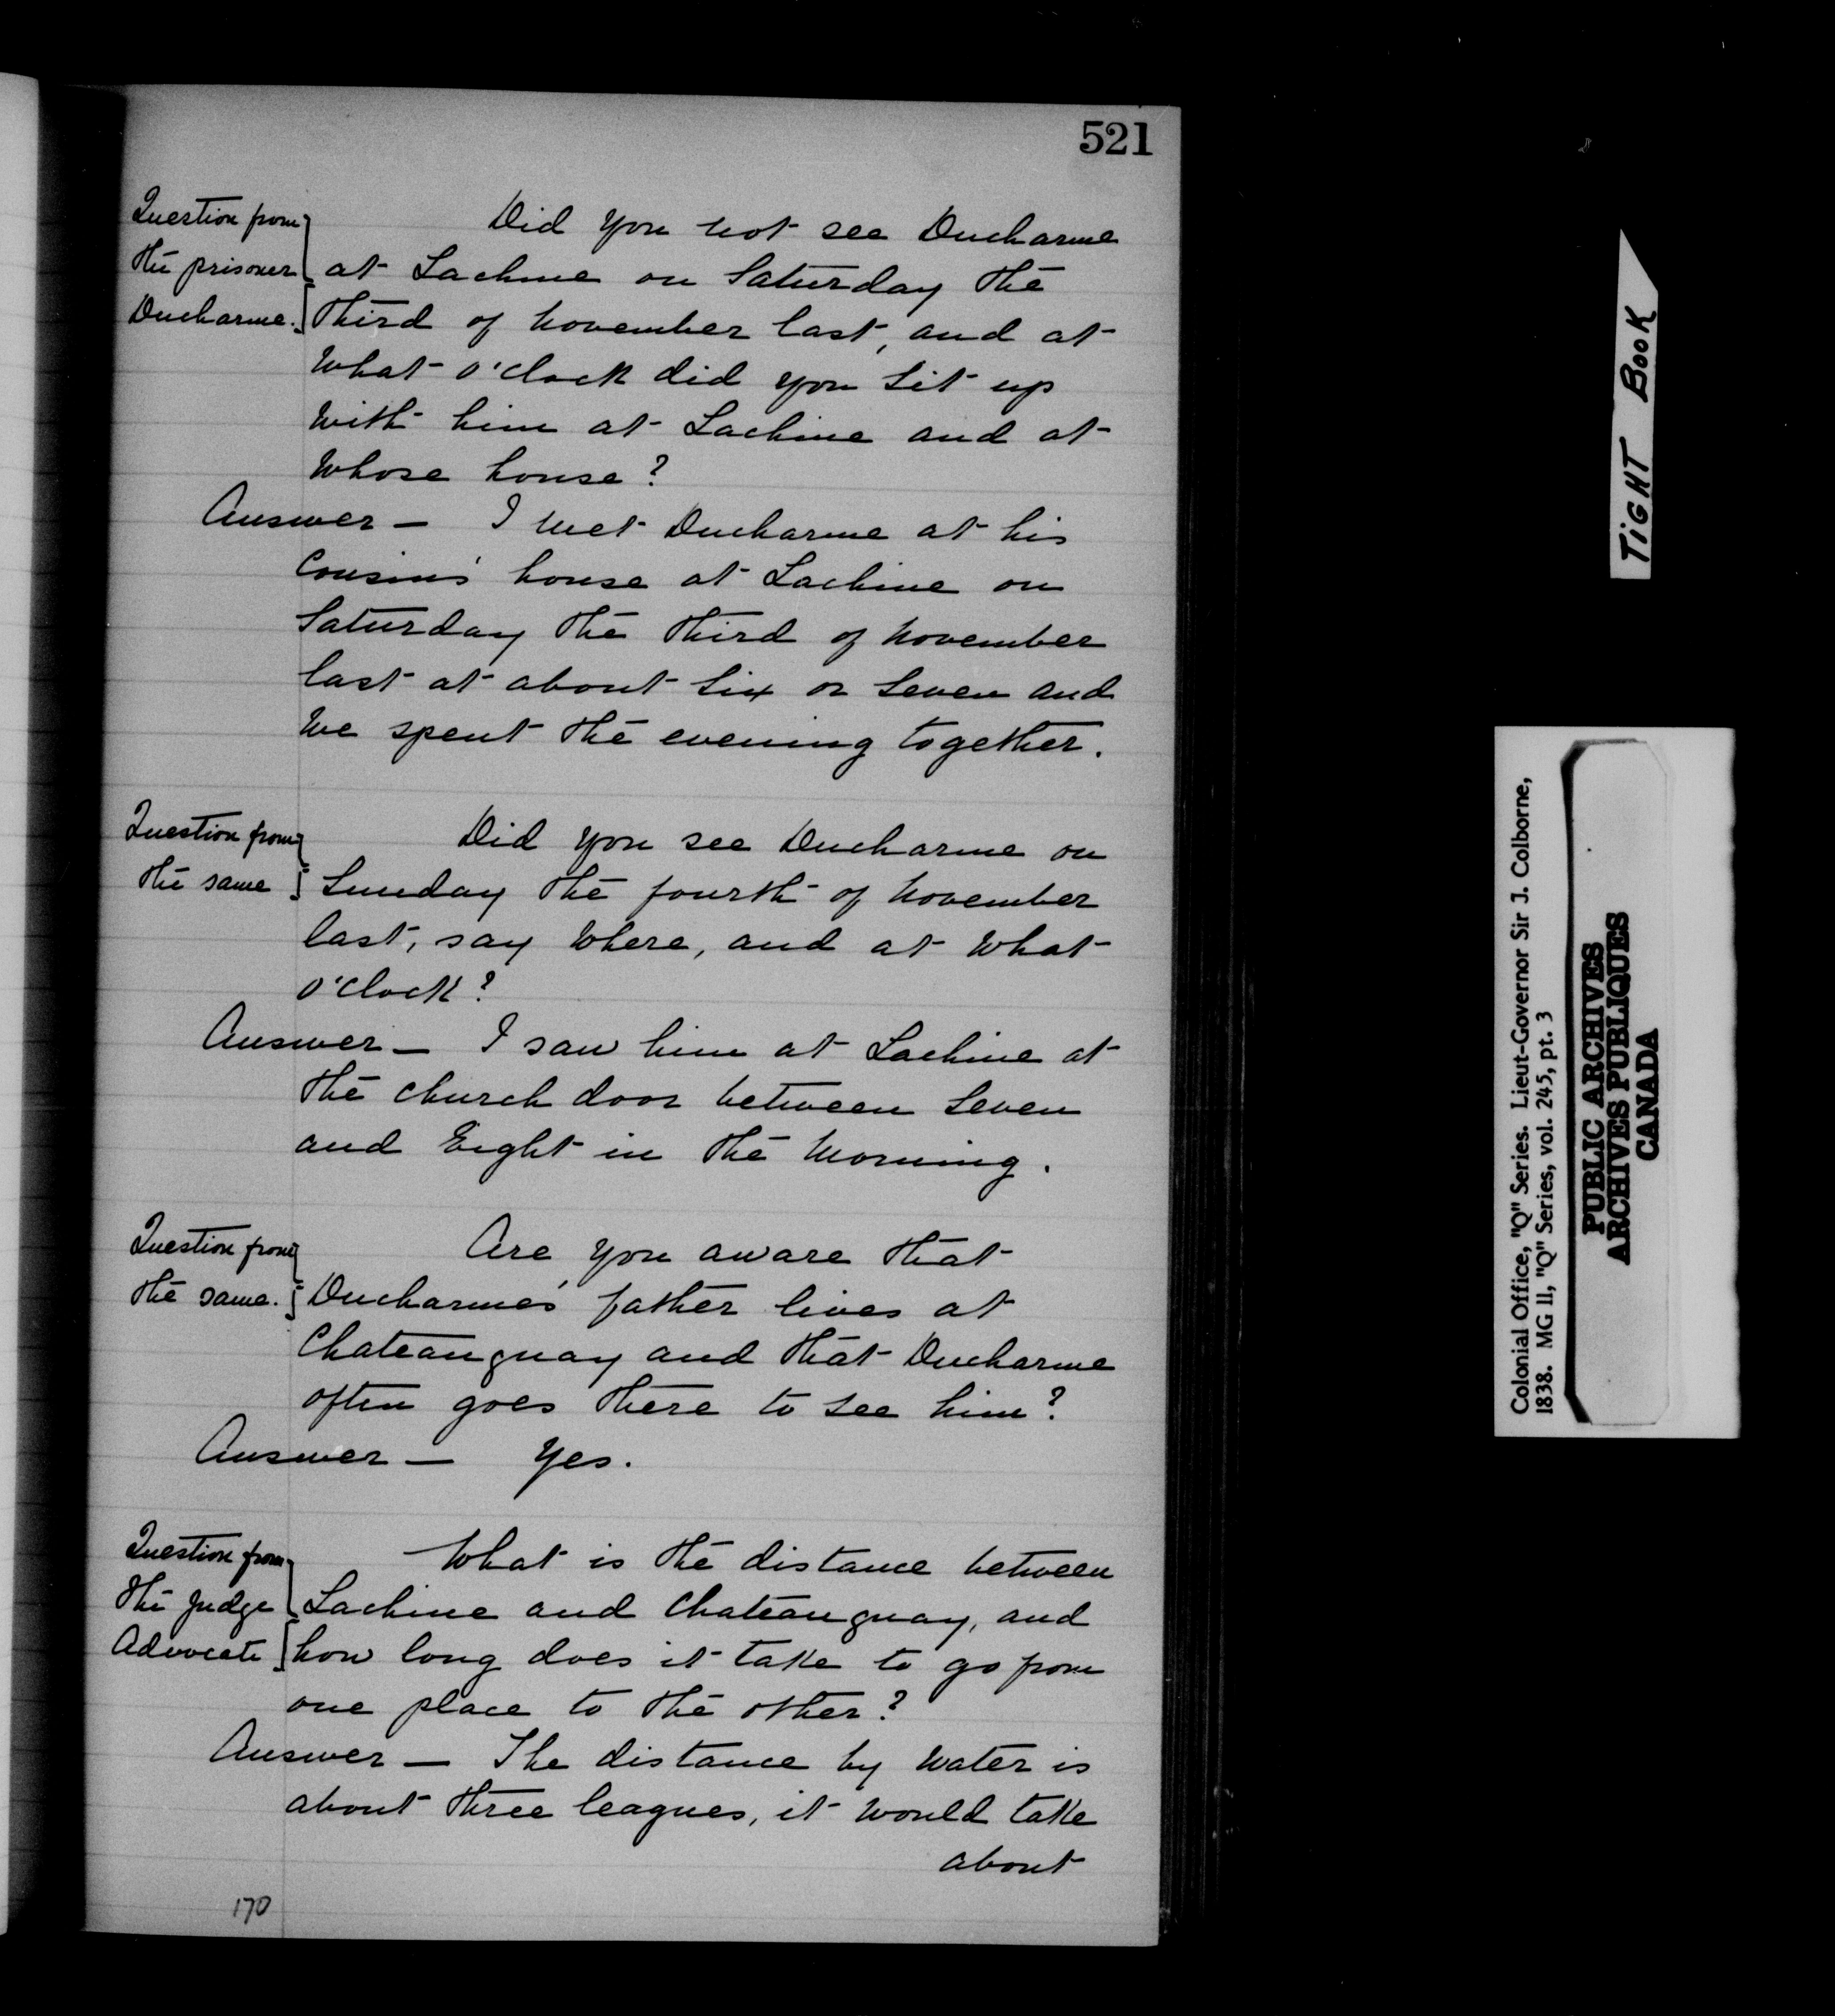 521
Question from
the prisoner
Ducharme.
Did you not see Ducharme
at Lachine on Saturday the
third of November last, and at
what o'clock did you sit up
with him at Lachine and at
whose house?
Answer — I met Ducharme at his
Cousin's house at Lachine on
Saturday the third of November
last at about six or seven and
we spent the evening together.
Question from
the same
Did you see Ducharme on
Sunday the fourth of November
last, say where, and at what
o'clock?
Answer — I saw him at Lachine at
the church door between seven
and Eight in the morning.
Question from
the same.
Are you aware that
Ducharme's father lives at
Chateauguay and that Ducharme
often goes there to see him?
Answer — Yes.
Question from
the Judge
Advocate
What is the distance between
Lachine and Chateauguay, and
how long does it take to go from
one place to the other?
Answer — The distance by water is
about three leagues, it would take
about
170
TIGHT BOOK
Colonial Office, "Q" Series. Lieut-Governor Sir J. Colborne,
1838. MG 11, "Q" Series, vol. 245, pt. 3
PUBLIC ARCHIVES
ARCHIVES PUBLIQUES
CANADA